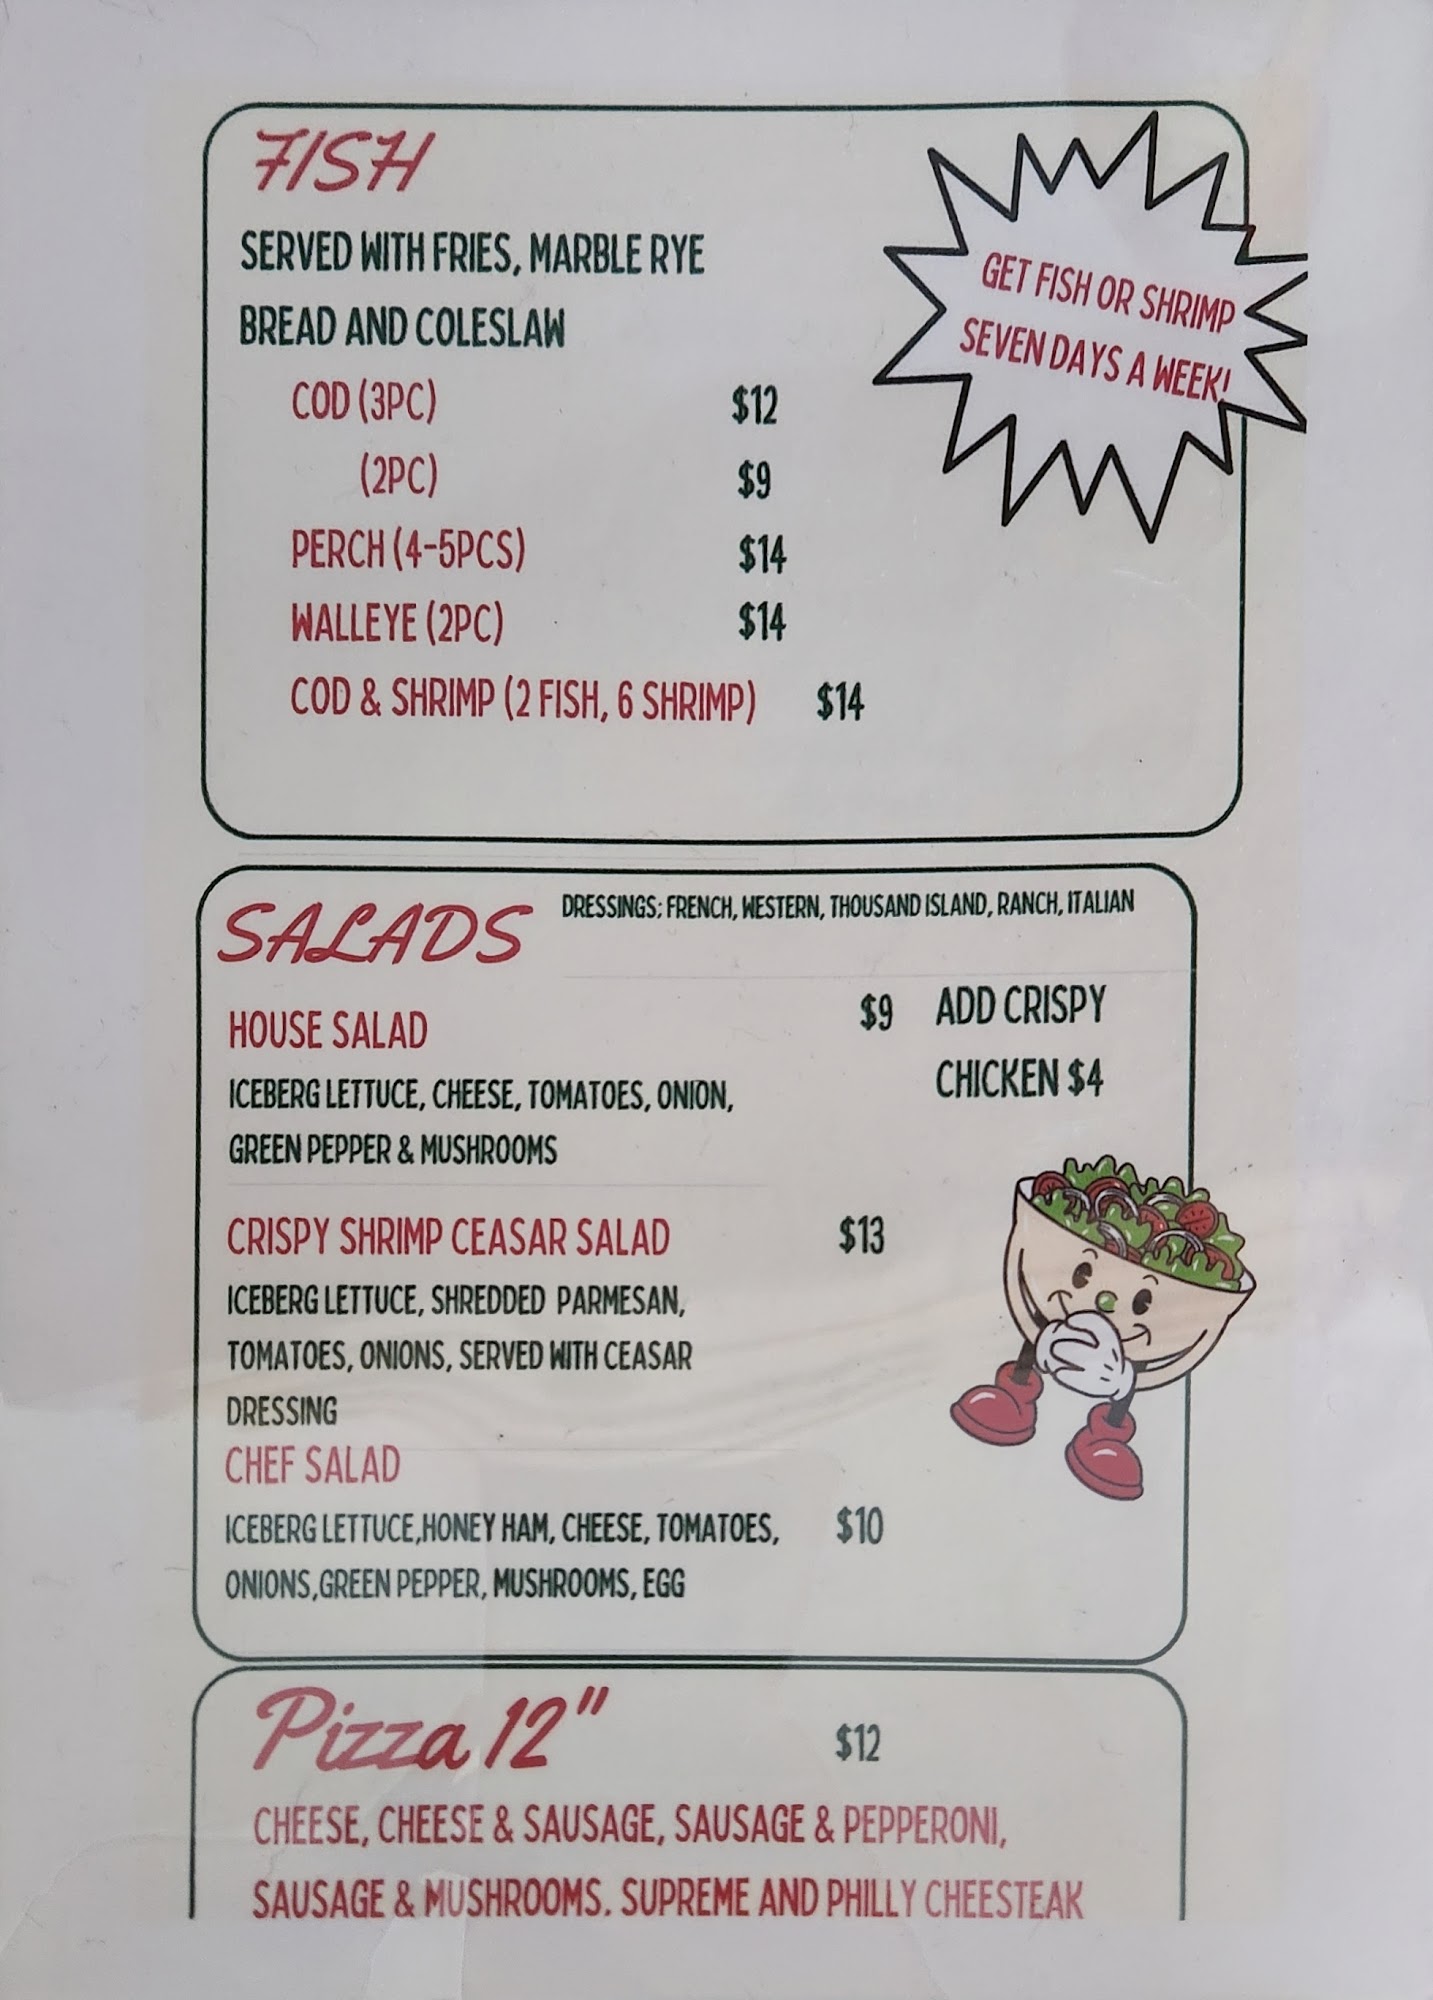 FISH
SERVED WITH FRIES, MARBLE RYE
BREAD AND COLESLAW
COD (3PC) $12
(2PC) $9
PERCH (4-5PCS) $14
WALLEYE (2PC) $14
COD & SHRIMP (2 FISH, 6 SHRIMP) $14
GET FISH OR SHRIMP
SEVEN DAYS A WEEK!
SALADS
DRESSINGS: FRENCH, WESTERN, THOUSAND ISLAND, RANCH, ITALIAN
HOUSE SALAD $9
ICEBERG LETTUCE, CHEESE, TOMATOES, ONION,
GREEN PEPPER & MUSHROOMS
ADD CRISPY
CHICKEN $4
CRISPY SHRIMP CEASAR SALAD $13
ICEBERG LETTUCE, SHREDDED PARMESAN,
TOMATOES, ONIONS, SERVED WITH CEASAR
DRESSING
CHEF SALAD
ICEBERG LETTUCE,HONEY HAM, CHEESE, TOMATOES, $10
ONIONS,GREEN PEPPER, MUSHROOMS, EGG
Pizza 12" $12
CHEESE, CHEESE & SAUSAGE, SAUSAGE & PEPPERONI,
SAUSAGE & MUSHROOMS. SUPREME AND PHILLY CHEESTEAK